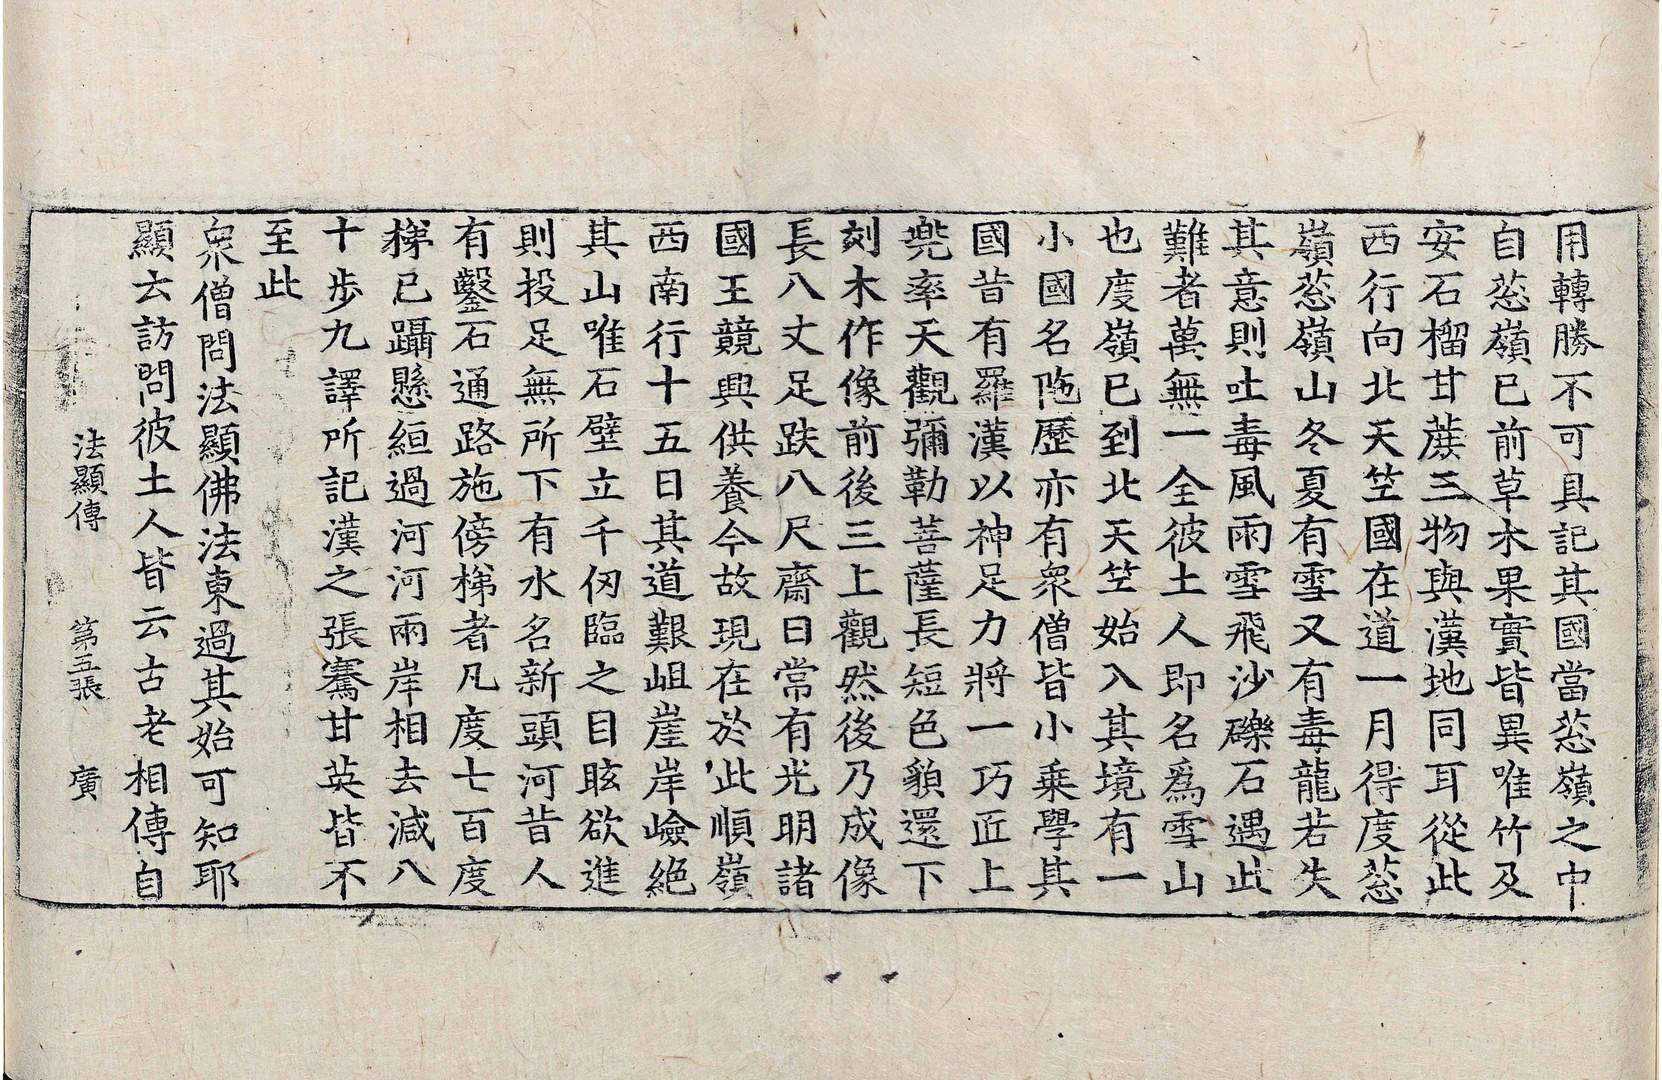 用轉勝不可具記其國當葱嶺之中
自葱嶺已前草木果實皆異唯竹及
安石榴甘蔗三物與漢地同耳從此
西行向北天竺國在道一月得度葱
嶺葱嶺山冬夏有雪又有毒龍若失
其意則吐毒風雨雪飛沙礫石遇此
難者萬無一全彼土人即名爲雪山
也度嶺已到北天竺始入其境有一
小國名陁歷亦有衆僧皆小乘學其
國昔有羅漢以神足力將一巧匠上
兠率天觀彌勒菩薩長短色貌還下
刻木作像前後三上觀然後乃成像
長八丈足趺八尺齋日常有光明諸
國王競興供養今故現在於此順嶺
西南行十五日其道艱岨崖岸嶮絕
其山唯石壁立千仞臨之目眩欲進
則投足無所下有水名新頭河昔人
有鑿石通路施傍梯者凡度七百度
梯已躡懸絙過河河兩岸相去減八
十步九譯所記漢之張騫甘英皆不
至此
衆僧問法顯佛法東過其始可知耶
顯云訪問彼土人皆云古老相傳自
法顯傳 第五張 廣